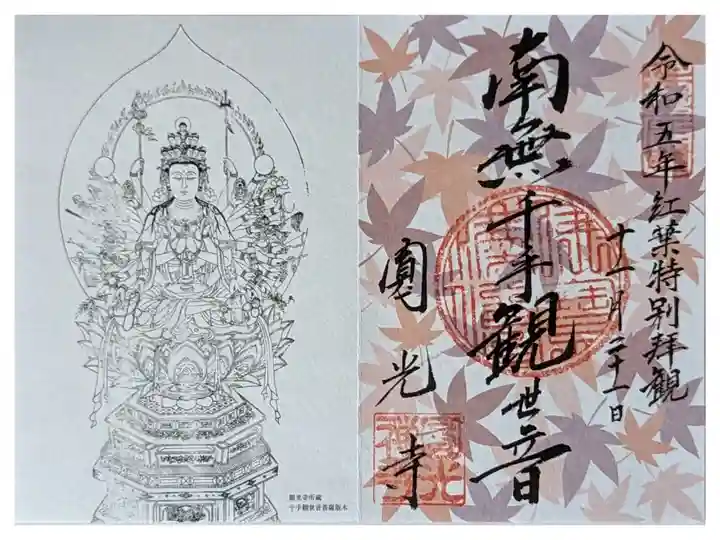 令和五年紅葉特別拝観
十一月二十一日
南無千手観世音
圓光寺
圓光寺所蔵
千手観世音菩薩版木